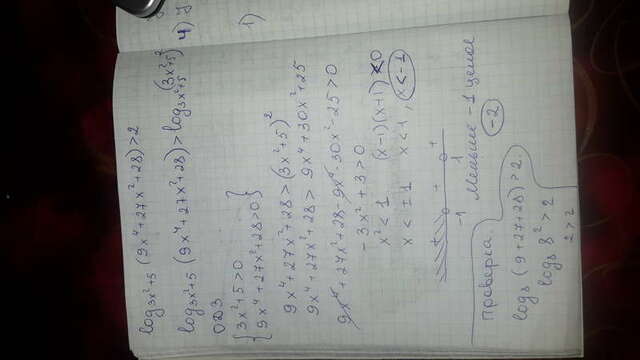 log₃ₓ²₊₅ (9x⁴+27x²+28)>2
log₃ₓ²₊₅ (9x⁴+27x²+28)>log₃ₓ²₊₅ (3x²+5)²
ОДЗ
{3x²+5>0
9x⁴+27x²+28>0}
9x⁴+27x²+28>(3x²+5)²
9x⁴+27x²+28>9x⁴+30x²+25
9x⁴+27x²+28-9x⁴-30x²-25>0
-3x²+3>0
x²<1 (x-1)(x+1)<0
x<±1 x<1, x<-1
+ - +
-1 1
Меньше -1 целое
-2
Проверка.
log₈(9+27+28)>2.
log₈8²>2
2>2
4)
1)